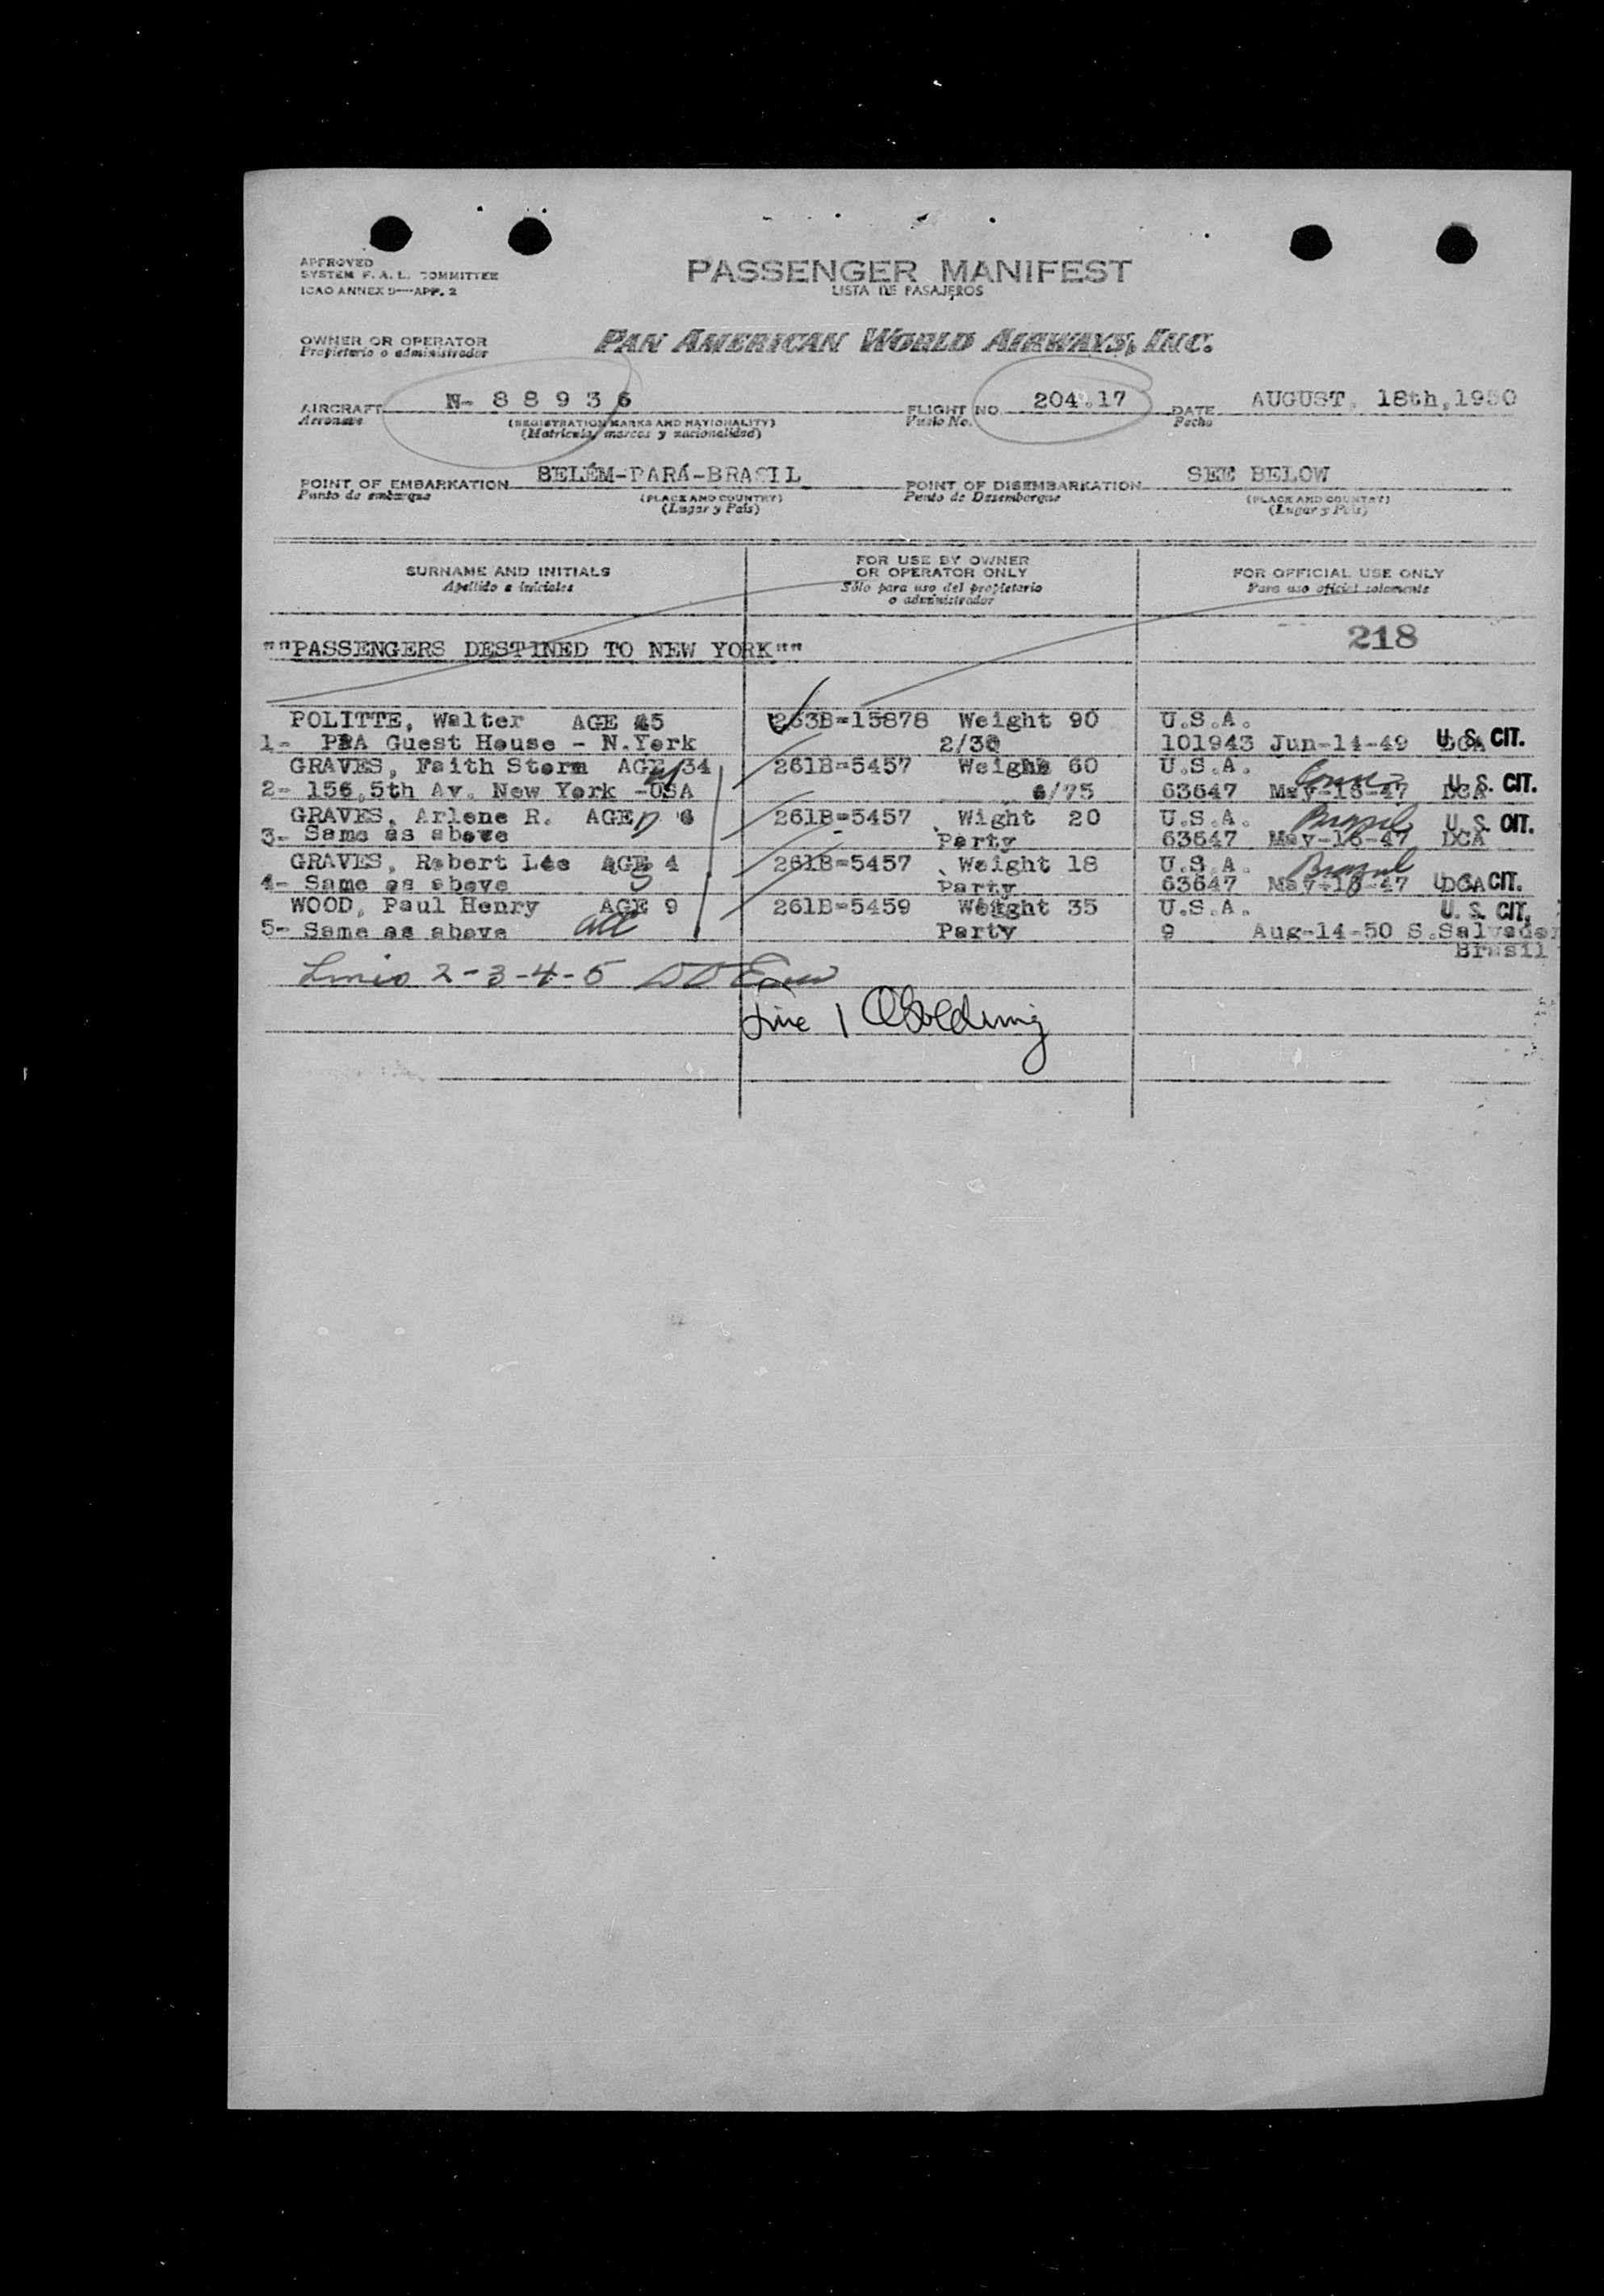 APPROVED
SYSTEM F. A. L. COMMITTEE
ICAO ANNEX 9—APP. 2
PASSENGER MANIFEST
LISTA DE PASAJEROS
OWNER OR OPERATOR
Propietario o administrador
PAN AMERICAN WORLD AIRWAYS, INC.
AIRCRAFT N- 8 8 9 3 6 FLIGHT NO. 204.17 DATE AUGUST, 18th, 1950
Aeronave (REGISTRATION MARKS AND NATIONALITY) Vuelo No. Fecha
(Matricula, marcas y nacionalidad)
POINT OF EMBARKATION BELÉM-PARÁ-BRASIL POINT OF DISEMBARKATION SEE BELOW
Punto de embarque (PLACE AND COUNTRY) Punto de Desembarque (PLACE AND COUNTRY)
(Lugar y País) (Lugar y País)
SURNAME AND INITIALS FOR USE BY OWNER OR OPERATOR ONLY FOR OFFICIAL USE ONLY
Apellido e iniciales Sólo para uso del propietario o administrador Para uso oficial solamente
""PASSENGERS DESTINED TO NEW YORK"" 218
POLITTE, Walter AGE 45 263B=15878 Weight 90 U.S.A.
1- PAA Guest House - N.York 2/30 101943 Jun-14-49 DCA U. S. CIT.
GRAVES, Faith Storm AGE 34 261B=5457 Weight 60 U.S.A.
2- 156,5th Av. New York -USA 6/75 63647 May-16-47 DCA U. S. CIT.
GRAVES, Arlene R. AGE 6 261B=5457 Wight 20 U.S.A. Brasil U. S. CIT.
3- Same as above Party 63647 May-16-47 DCA
GRAVES, Robert Lee AGE 4 261B=5457 Weight 18 U.S.A. Brasil
4- Same as above 5 Party 63647 May-16-47 DCA U. S. CIT.
WOOD, Paul Henry AGE 9 261B=5459 Weight 35 U.S.A. U. S. CIT.
5- Same as above Party 9 Aug-14-50 S.Salvador
Brasil
Lines 2-3-4-5
Line 1 Golding